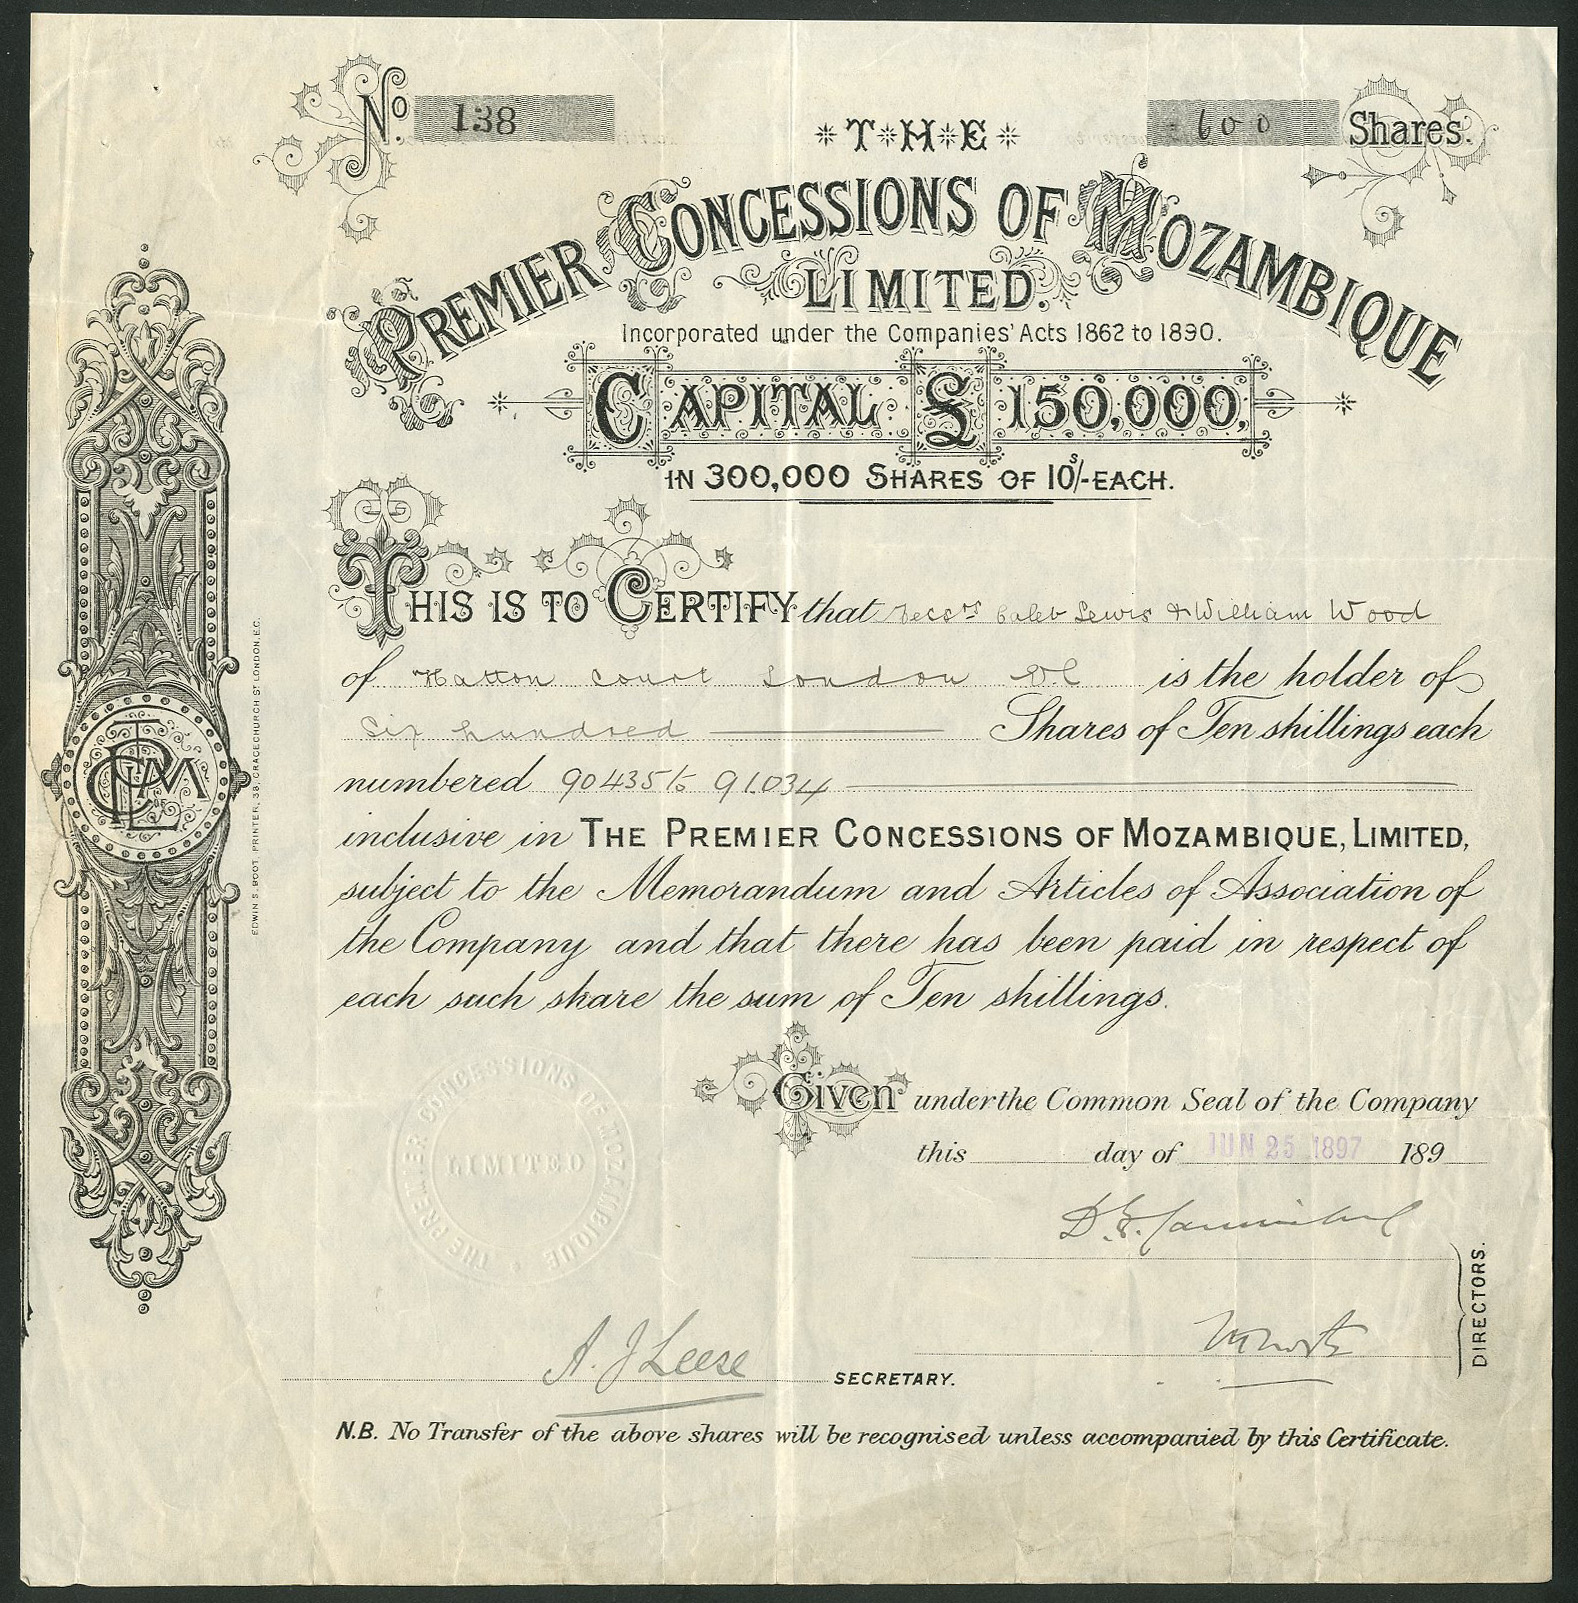 No. 138
600 Shares.
THE
PREMIER CONCESSIONS OF MOZAMBIQUE
LIMITED.
Incorporated under the Companies' Acts 1862 to 1890.
CAPITAL £150,000,
IN 300,000 SHARES OF 10s/- EACH.
THIS IS TO CERTIFY that Messrs Caleb Lewis & William Wood
of Hatton Court London is the holder of
Six hundred Shares of Ten shillings each
numbered 90435 to 91034
inclusive in THE PREMIER CONCESSIONS OF MOZAMBIQUE, LIMITED,
subject to the Memorandum and Articles of Association of
the Company and that there has been paid in respect of
each such share the sum of Ten shillings.
Given under the Common Seal of the Company
this day of JUN 25 1897 189
DIRECTORS.
A. J Leese SECRETARY.
N.B. No Transfer of the above shares will be recognised unless accompanied by this Certificate.
THE PREMIER CONCESSIONS OF MOZAMBIQUE
LIMITED
EDWIN S. BOOT, PRINTER, 38, GRACECHURCH ST LONDON, E.C.